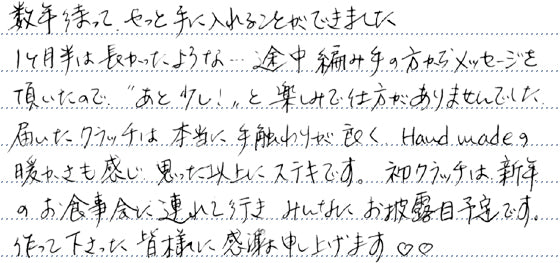 数年待って、やっと手に入れることができました
1ヶ月半は長かったような… 途中編み手の方からメッセージを
頂いたので、"あと少し!"と楽しみで仕方がありませんでした
届いたクラッチは本当に手触わりが良く、Hand madeの
暖かさも感じ 思った以上にステキです。初クラッチは、新年
のお食事会に連れて行き みんなに お披露目予定です。
作って下さった 皆様に感謝申し上げます♡♡